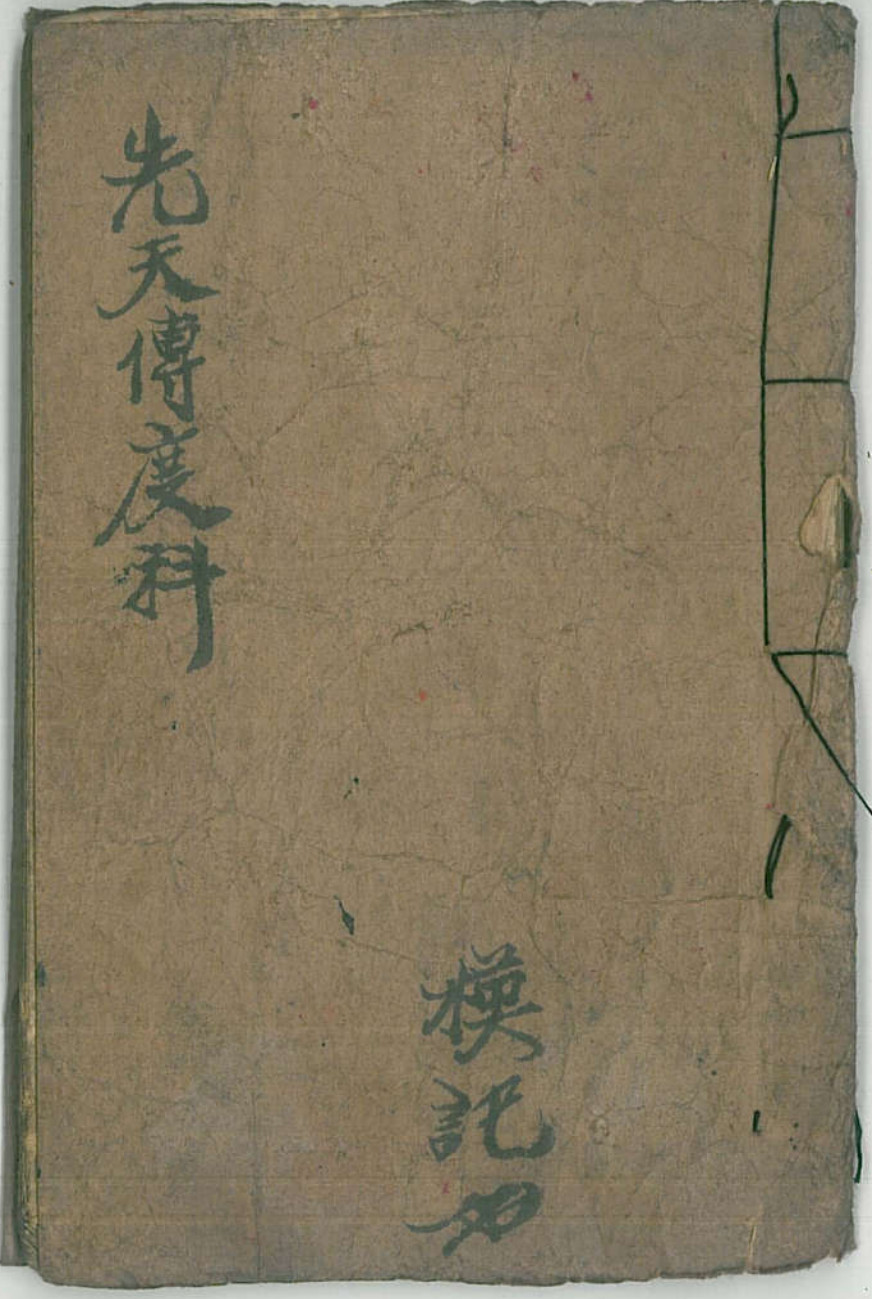 先天傳度科
模記